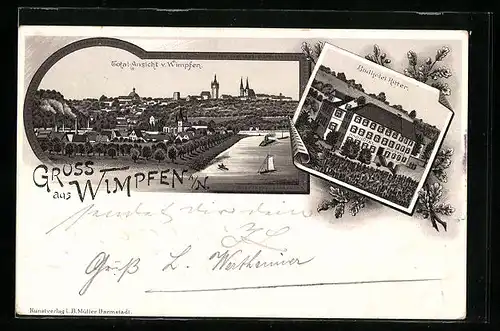 Total-Ansicht v. Wimpfen.
Ritter.
GRUSS
aus WIMPFEN a/N.
sendet dir dein
Gruß L. Wertheimer
Kunstverlag i. B. Müller Darmstadt.